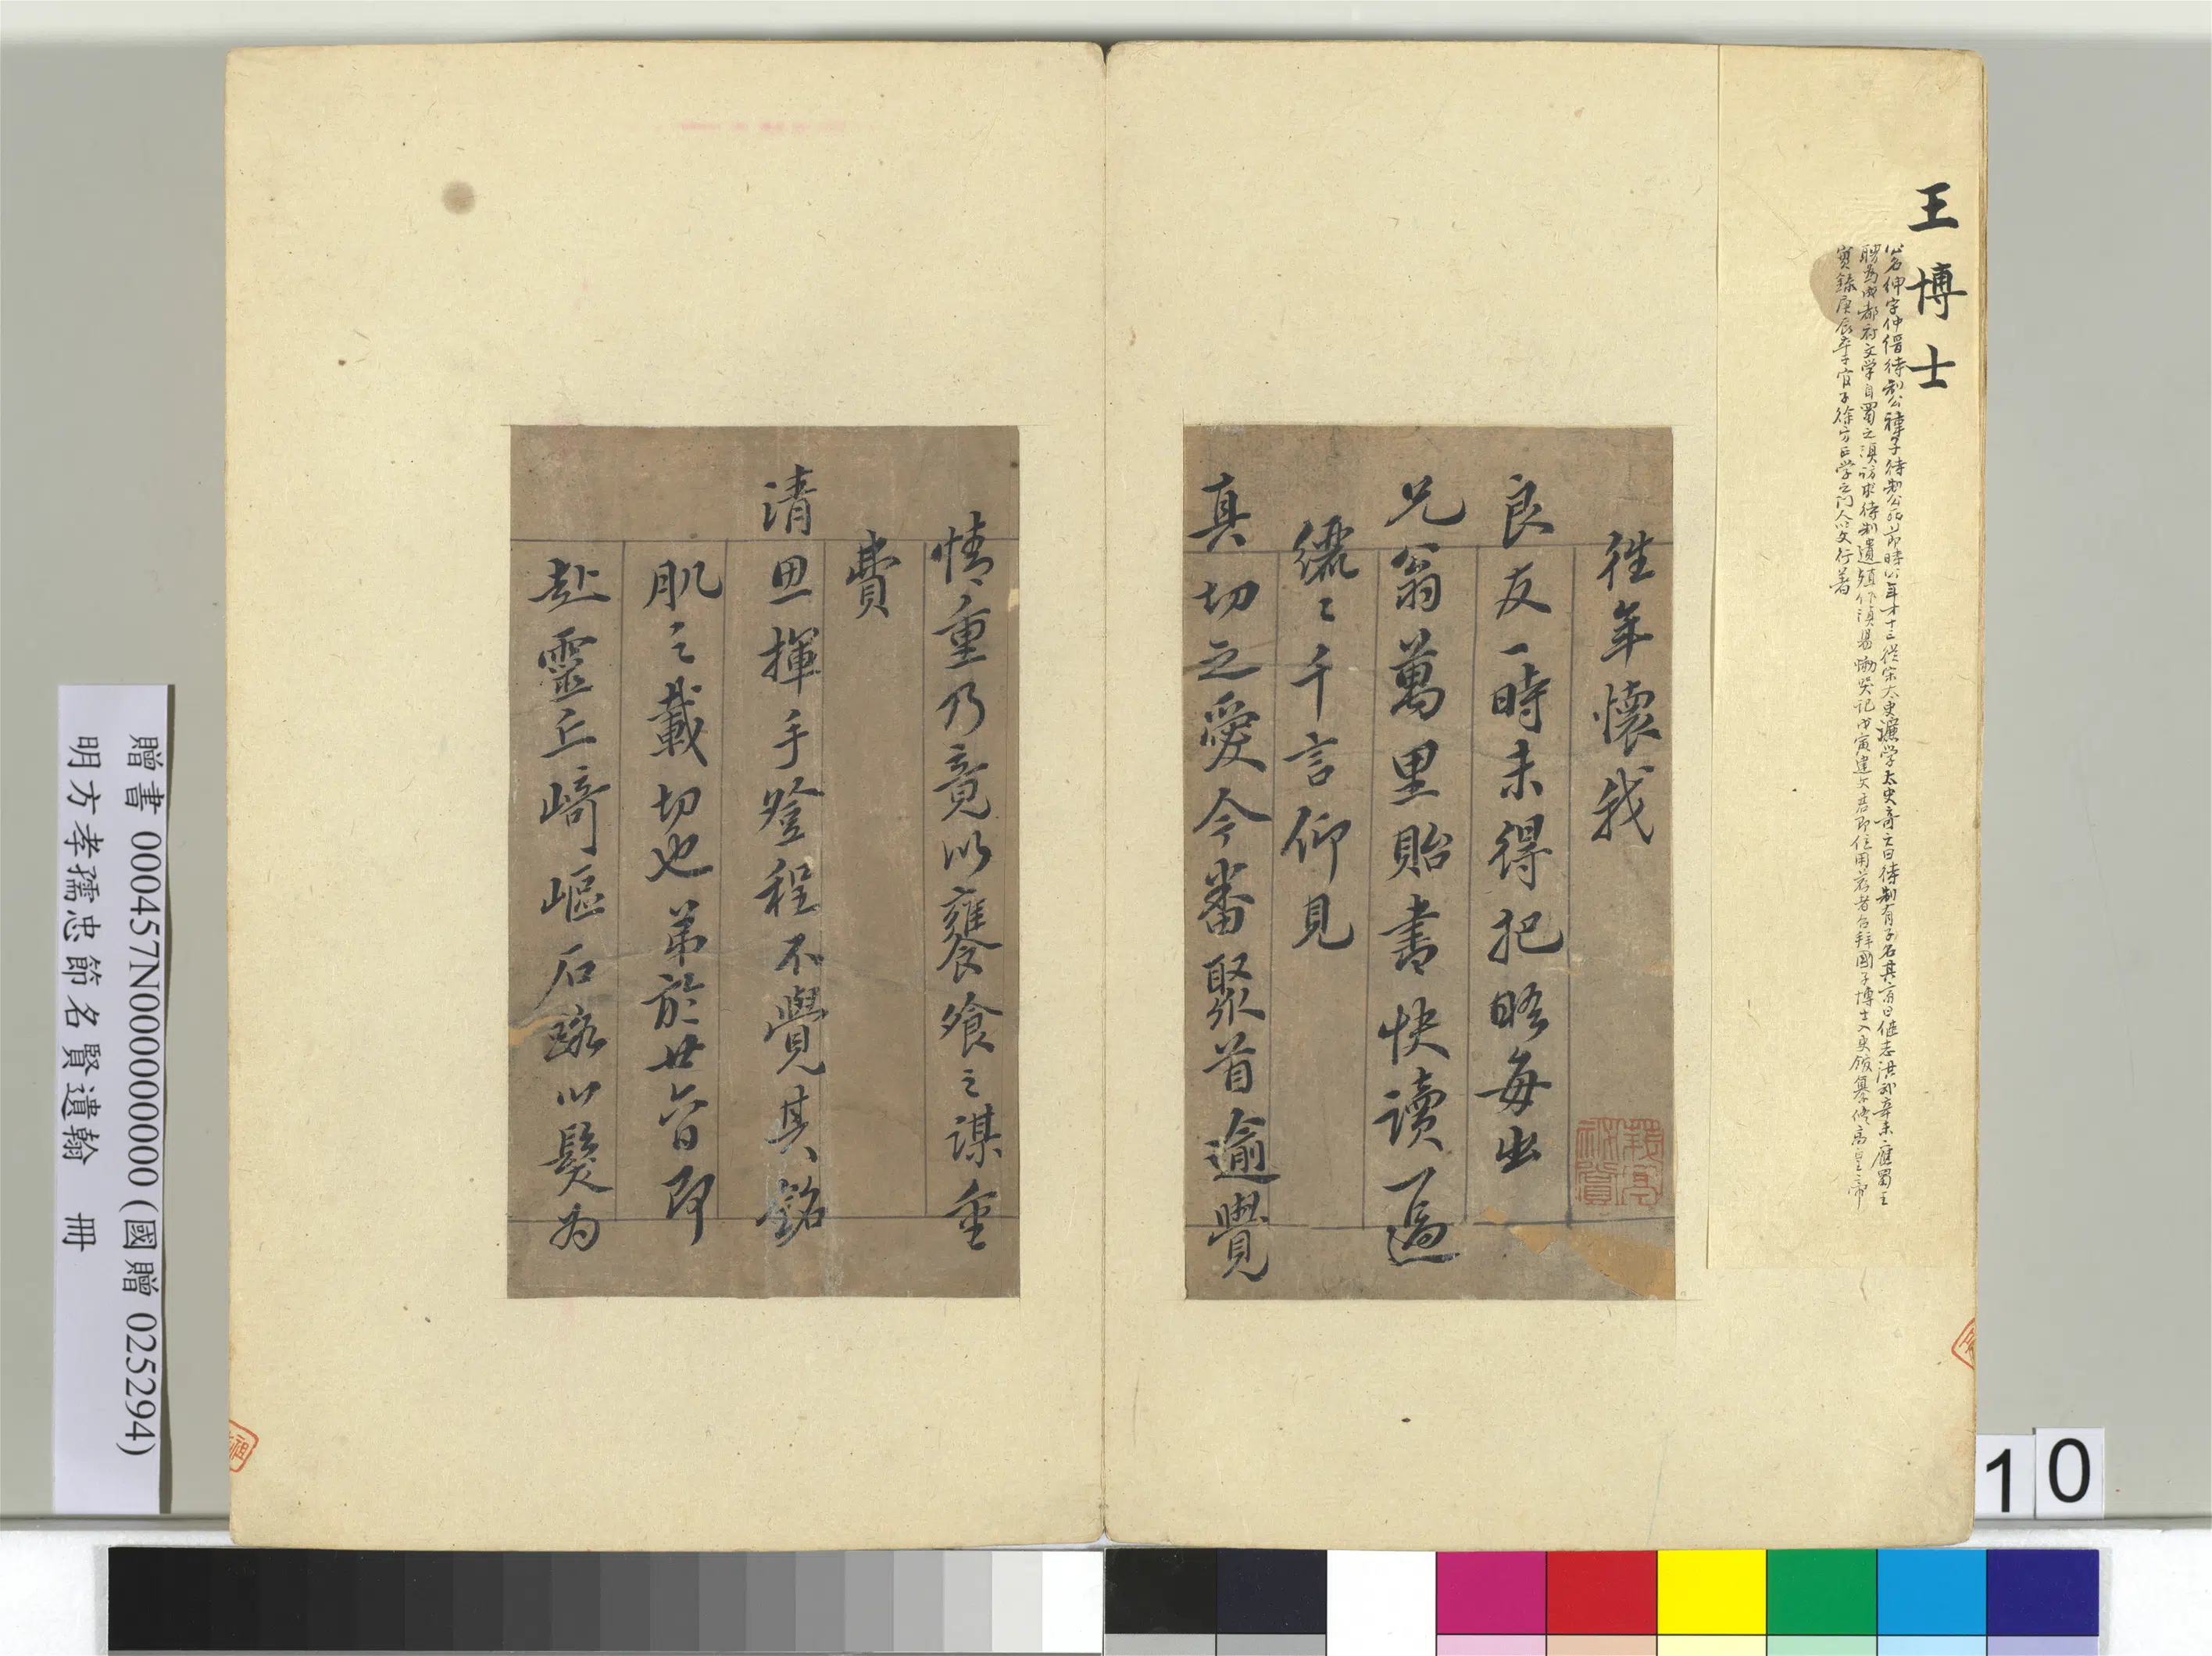 王博士
公名紳字仲縉待制公禕子待制公死節時公年才十三從宋太史濂学太史奇之曰待制有子名其齋曰繼志洪武辛未應蜀王
聘為成都府文学自蜀之滇訪求待制遺殖作滇畧慟哭記戊寅建文君即位用薦者召拜國子博士入史館纂修高皇帝
實錄庚辰卒于官子徐方正学之門人以文行著
往年懷我
良友一時未得把晤每出
兄翁萬里貽書快讀一過
纚〻千言仰見
真切之愛今番聚首逾覺
情重乃竟以饔飧之謀重
費
清思揮手登程不覺其銘
肌之載切也弟於廿六日即
赴靈丘崎嶇石路以髮为
贈書 000457N000000000 (國贈 025294)
明方孝孺忠節名賢遺翰 冊
10